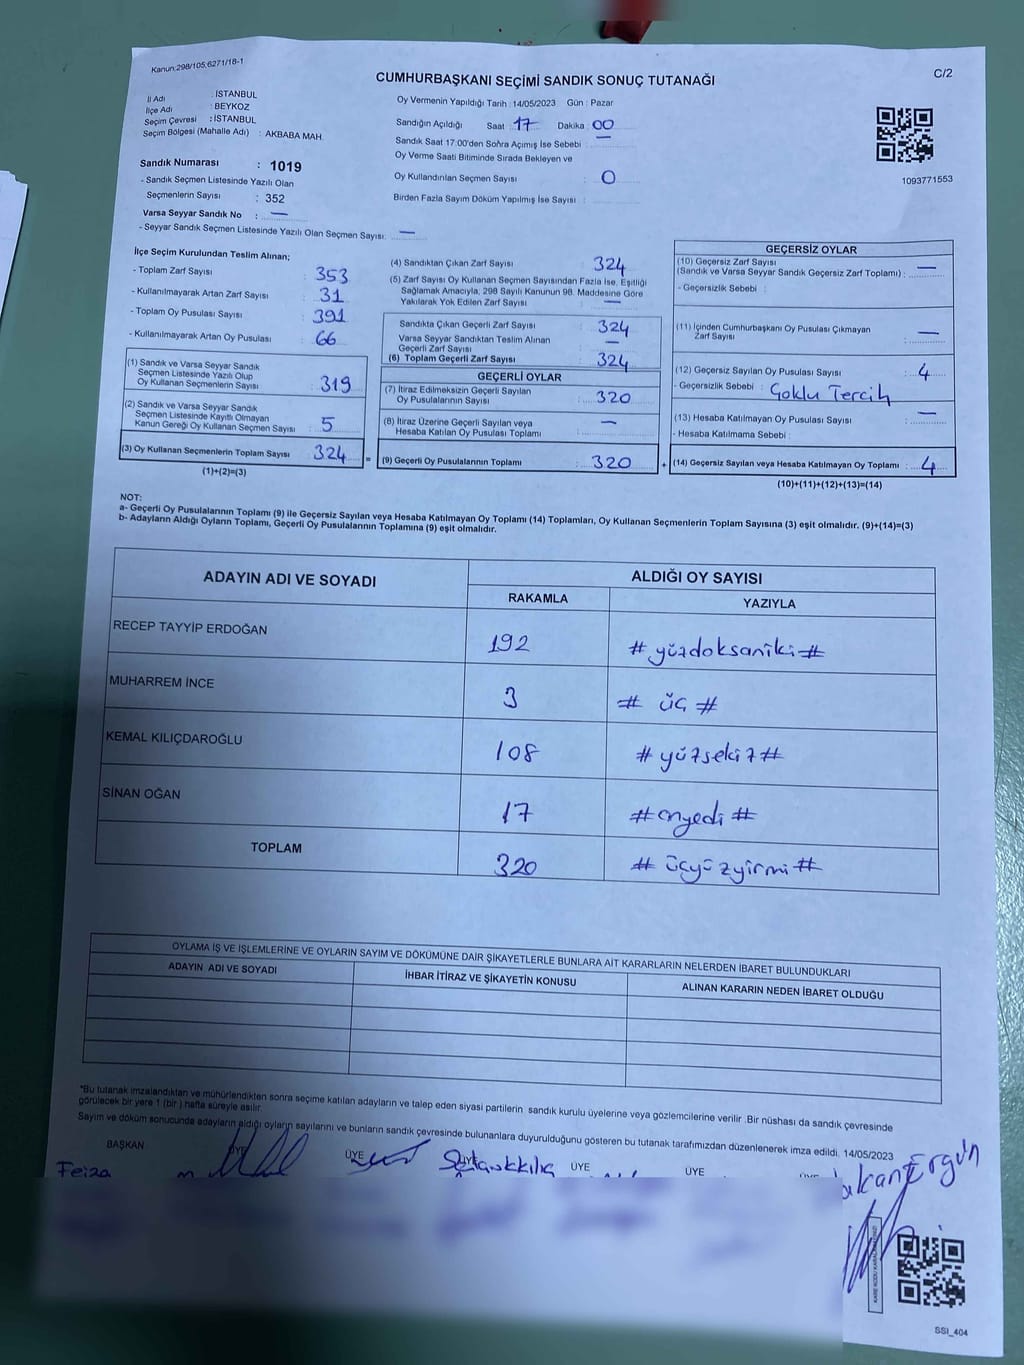 Kanun:298/105;6271/18-1
C/2
CUMHURBAŞKANI SEÇİMİ SANDIK SONUÇ TUTANAĞI
İl Adı : İSTANBUL
İlçe Adı : BEYKOZ
Seçim Çevresi : İSTANBUL
Seçim Bölgesi (Mahalle Adı) : AKBABA MAH.
Sandık Numarası : 1019
- Sandık Seçmen Listesinde Yazılı Olan
Seçmenlerin Sayısı : 352
Varsa Seyyar Sandık No : —
- Seyyar Sandık Seçmen Listesinde Yazılı Olan Seçmen Sayısı: —
Oy Vermenin Yapıldığı Tarih : 14/05/2023 Gün : Pazar
Sandığın Açıldığı Saat : 17 Dakika : 00
Sandık Saat 17:00'den Sonra Açımış İse Sebebi : —
Oy Verme Saati Bitiminde Sırada Bekleyen ve
Oy Kullandırılan Seçmen Sayısı : 0
Birden Fazla Sayım Döküm Yapılmış İse Sayısı :
1093771553
İlçe Seçim Kurulundan Teslim Alınan;
- Toplam Zarf Sayısı : 353
- Kullanılmayarak Artan Zarf Sayısı : 31
- Toplam Oy Pusulası Sayısı : 391
- Kullanılmayarak Artan Oy Pusulası : 66
(1) Sandık ve Varsa Seyyar Sandık
Seçmen Listesinde Yazılı Olup
Oy Kullanan Seçmenlerin Sayısı : 319
(2) Sandık ve Varsa Seyyar Sandık
Seçmen Listesinde Kayıtlı Olmayan
Kanun Gereği Oy Kullanan Seçmen Sayısı : 5
(3) Oy Kullanan Seçmenlerin Toplam Sayısı : 324
(1)+(2)=(3)
(4) Sandıktan Çıkan Zarf Sayısı : 324
(5) Zarf Sayısı Oy Kullanan Seçmen Sayısından Fazla İse, Eşitliği
Sağlamak Amacıyla, 298 Sayılı Kanunun 98. Maddesine Göre
Yakılarak Yok Edilen Zarf Sayısı : —
Sandıkta Çıkan Geçerli Zarf Sayısı : 324
Varsa Seyyar Sandıktan Teslim Alınan
Geçerli Zarf Sayısı : —
(6) Toplam Geçerli Zarf Sayısı : 324
GEÇERLİ OYLAR
(7) İtiraz Edilmeksizin Geçerli Sayılan
Oy Pusulalarının Sayısı : 320
(8) İtiraz Üzerine Geçerli Sayılan veya
Hesaba Katılan Oy Pusulası Toplamı : —
= (9) Geçerli Oy Pusulalarının Toplamı : 320
GEÇERSİZ OYLAR
(10) Geçersiz Zarf Sayısı
(Sandık ve Varsa Seyyar Sandık Geçersiz Zarf Toplamı) : —
- Geçersizlik Sebebi :
(11) İçinden Cumhurbaşkanı Oy Pusulası Çıkmayan
Zarf Sayısı : —
(12) Geçersiz Sayılan Oy Pusulası Sayısı : 4
- Geçersizlik Sebebi : Çoklu Tercih
(13) Hesaba Katılmayan Oy Pusulası Sayısı : —
- Hesaba Katılmama Sebebi :
+ (14) Geçersiz Sayılan veya Hesaba Katılmayan Oy Toplamı : 4
(10)+(11)+(12)+(13)=(14)
NOT:
a- Geçerli Oy Pusulalarının Toplamı (9) ile Geçersiz Sayılan veya Hesaba Katılmayan Oy Toplamı (14) Toplamları, Oy Kullanan Seçmenlerin Toplam Sayısına (3) eşit olmalıdır. (9)+(14)=(3)
b- Adayların Aldığı Oyların Toplamı, Geçerli Oy Pusulalarının Toplamına (9) eşit olmalıdır.
ADAYIN ADI VE SOYADI
ALDIĞI OY SAYISI
RAKAMLA YAZIYLA
RECEP TAYYİP ERDOĞAN 192 # yüzdoksaniki #
MUHARREM İNCE 3 # üç #
KEMAL KILIÇDAROĞLU 108 # yüzsekiz #
SİNAN OĞAN 17 # onyedi #
TOPLAM 320 # üçyüzyirmi #
OYLAMA İŞ VE İŞLEMLERİNE VE OYLARIN SAYIM VE DÖKÜMÜNE DAİR ŞİKAYETLERLE BUNLARA AİT KARARLARIN NELERDEN İBARET BULUNDUKLARI
ADAYIN ADI VE SOYADI İHBAR İTİRAZ VE ŞİKAYETİN KONUSU ALINAN KARARIN NEDEN İBARET OLDUĞU
"Bu tutanak imzalandıktan ve mühürlendikten sonra seçime katılan adayların ve talep eden siyasi partilerin sandık kurulu üyelerine veya gözlemcilerine verilir .Bir nüshası da sandık çevresinde
görülecek bir yere 1 (bir ) hafta süreyle asılır.
Sayım ve döküm sonucunda adayların aldığı oyların sayılarını ve bunların sandık çevresinde bulunanlara duyurulduğunu gösteren bu tutanak tarafımızdan düzenlenerek imza edildi. 14/05/2023
BAŞKAN ÜYE ÜYE ÜYE ÜYE ÜYE ÜYE
Feiza
Ergün
SSI_404